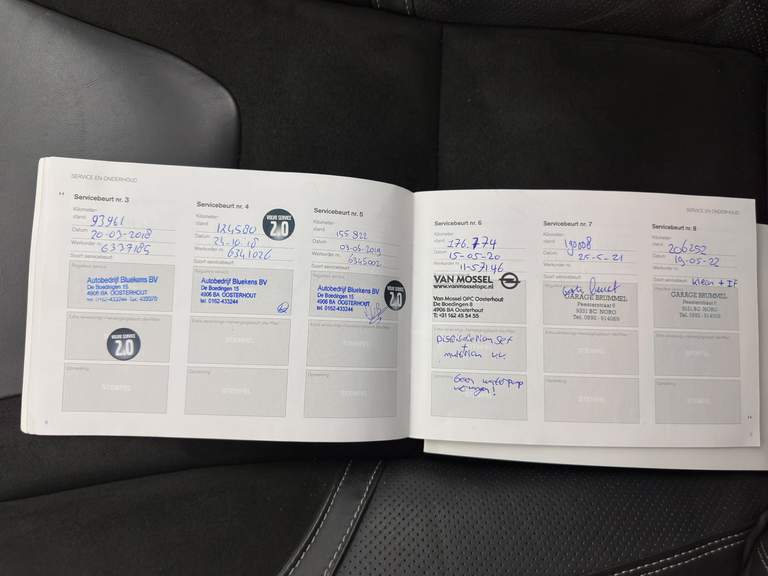 SERVICE EN ONDERHOUD
Servicebeurt nr. 3
Kilometer-
stand 93961
Datum 20-03-2018
Werkorder nr. 6337185
Soort servicebeurt
Reguliere service
Autobedrijf Bluekens BV
De Boedingen 15
4906 BA OOSTERHOUT
tel: 0162-433244
VOLVO SERVICE
2.0
STEMPEL
Opmerking
STEMPEL
Servicebeurt nr. 4
Kilometer-
stand 124580
Datum 23-10-18
Werkorder nr. 6341026
Soort servicebeurt
VOLVO SERVICE
2.0
Reguliere service
Autobedrijf Bluekens BV
De Boedingen 15
4906 BA OOSTERHOUT
tel: 0162-433244
STEMPEL
Opmerking
STEMPEL
Servicebeurt nr. 5
Kilometer-
stand 155822
Datum 03-06-2019
Werkorder nr. 6345002
Soort servicebeurt
Reguliere service
Autobedrijf Bluekens BV
De Boedingen 15
4906 BA OOSTERHOUT
tel: 0162-433244
VOLVO SERVICE
2.0
STEMPEL
Opmerking
STEMPEL
SERVICE EN ONDERHOUD
Servicebeurt nr. 6
Kilometer-
stand 176.774
Datum 15-05-20
Werkorder nr. 11-571146
VAN MOSSEL
www.vanmosselopc.nl
Van Mossel OPC Oosterhout
De Boedingen 8
4906 BA Oosterhout
T: +31 162 45 54 55
Distributie set
+
multiriem
Opmerking
Geen waterpomp
Servicebeurt nr. 7
Kilometer-
stand
Datum 25-5-21
Werkorder nr.
Soort servicebeurt
grote beurt
GARAGE BRUMMEL
Peesterstraat 11
9331 BC NORG
STEMPEL
Opmerking
STEMPEL
Servicebeurt nr. 8
Kilometer-
stand 206252
Datum 19-05-22
Werkorder nr.
Soort servicebeurt klein +
GARAGE BRUMMEL
Peesterstraat 11
9331 BC NORG
STEMPEL
Opmerking
STEMPEL